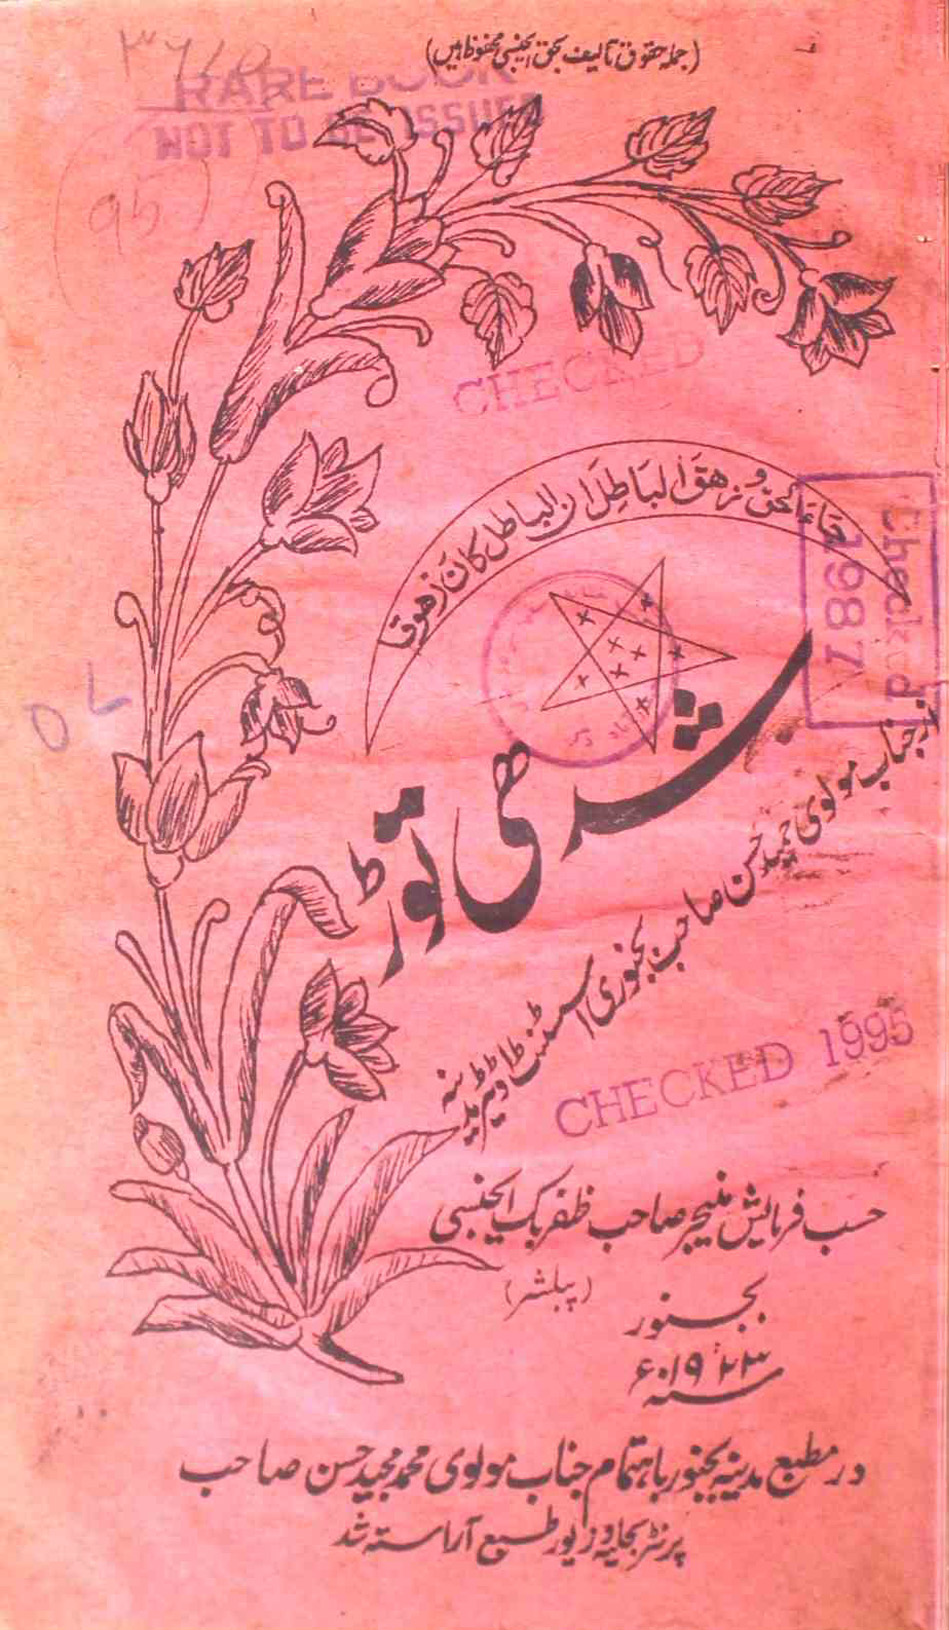 (جملہ حقوق تالیف بحق ایجنسی محفوظ ہیں)
RARE BOOK
NOT TO BE ISSUED
(95)
CHECKED
جَاءَ الحق و زهقَ البَاطِلَ ان الباطل کانَ زهوقا
Checked
1987
شدھی توڑ
از جناب مولوی حمید حسن صاحب بجنوری اسسٹنٹ اڈیٹر مدینہ
CHECKED 1995
حسب فرمایش منیجر صاحب ظفر بک ایجنسی
(پبلشر)
بجنور
سنہ ۱۹۲۳ء
در مطبع مدینہ بجنور باہتمام جناب مولوی محمد مجید حسن صاحب
پرنٹر بحلیہ و زیور طبع آراستہ شد